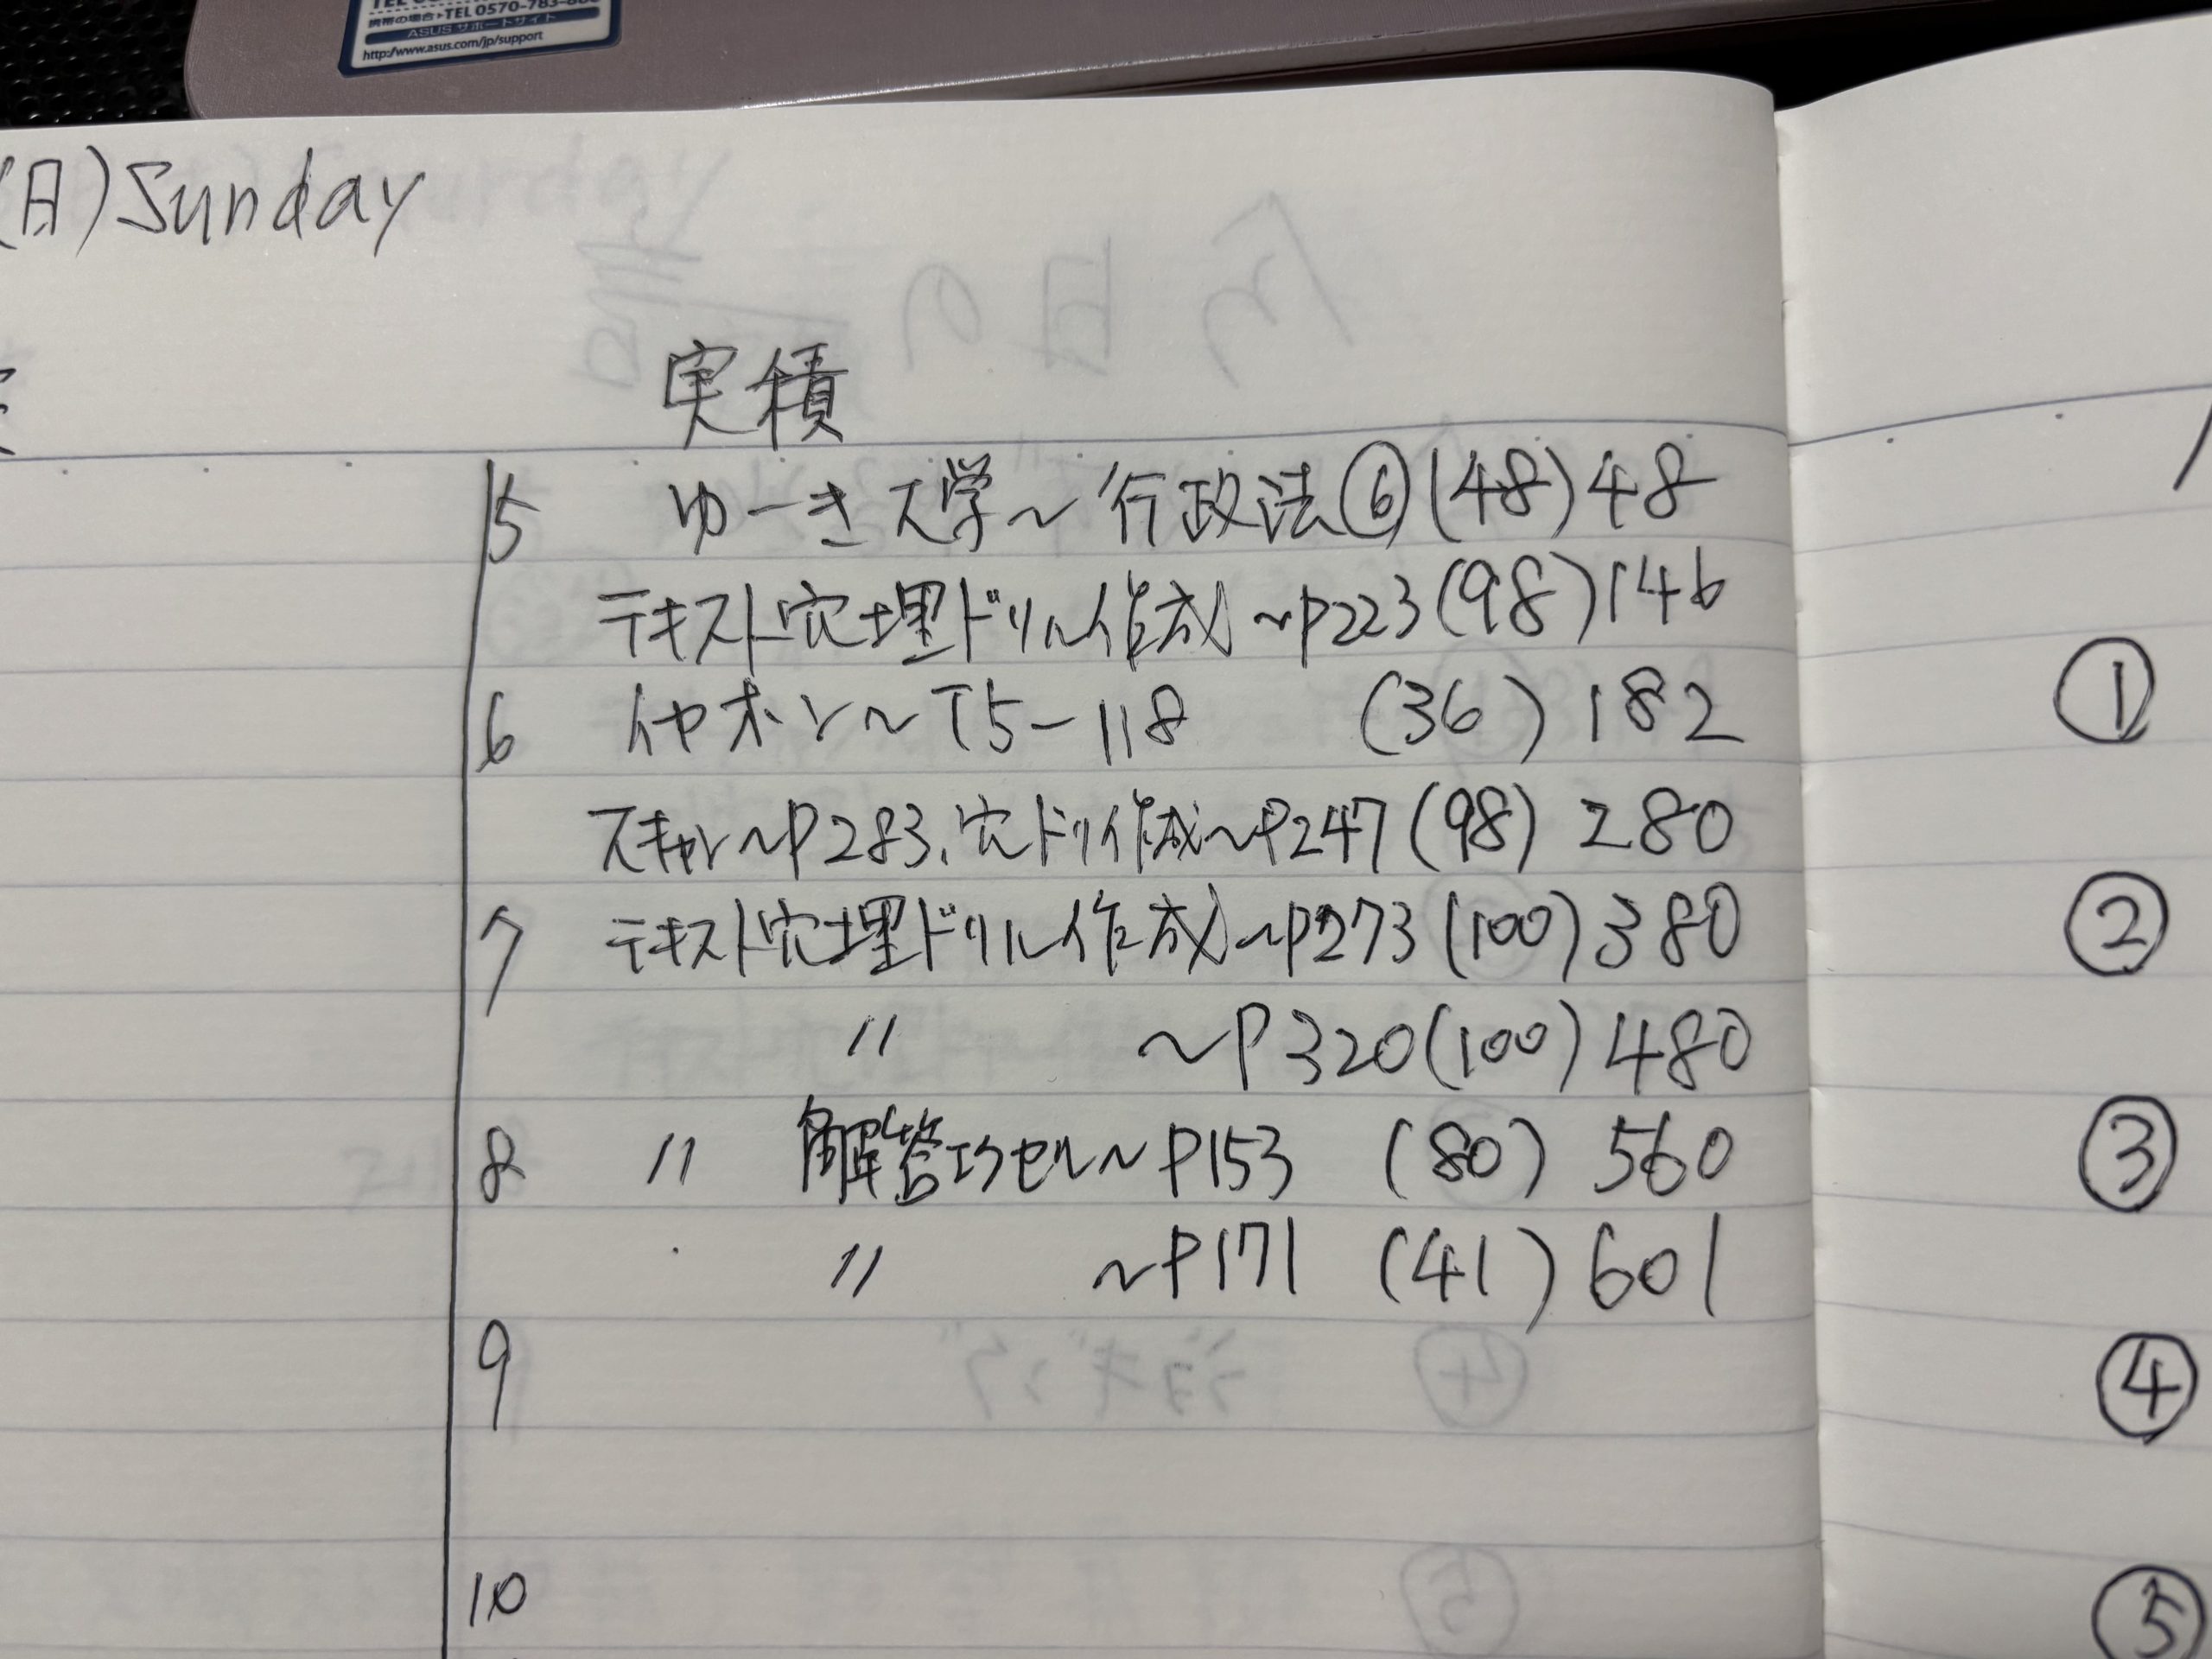 携帯の場合▶TEL 0570-783-88
ASUS サポートサイト
http://www.asus.com/jp/support
(日)Sunday
実積
5 ゆーき大学~行政法⑥(48)48
テキスト穴埋ドリル作成~P223(98)146
6 イヤホン~T5-118 (36)182
スキャン~P283、穴ドリ作成~P247(98)280
7 テキスト穴埋ドリル作成~P273(100)380
〃 ~P320(100)480
8 〃 解答エクセル~P153 (80)560
〃 ~P171 (41)601
9
10
①
②
③
④
⑤